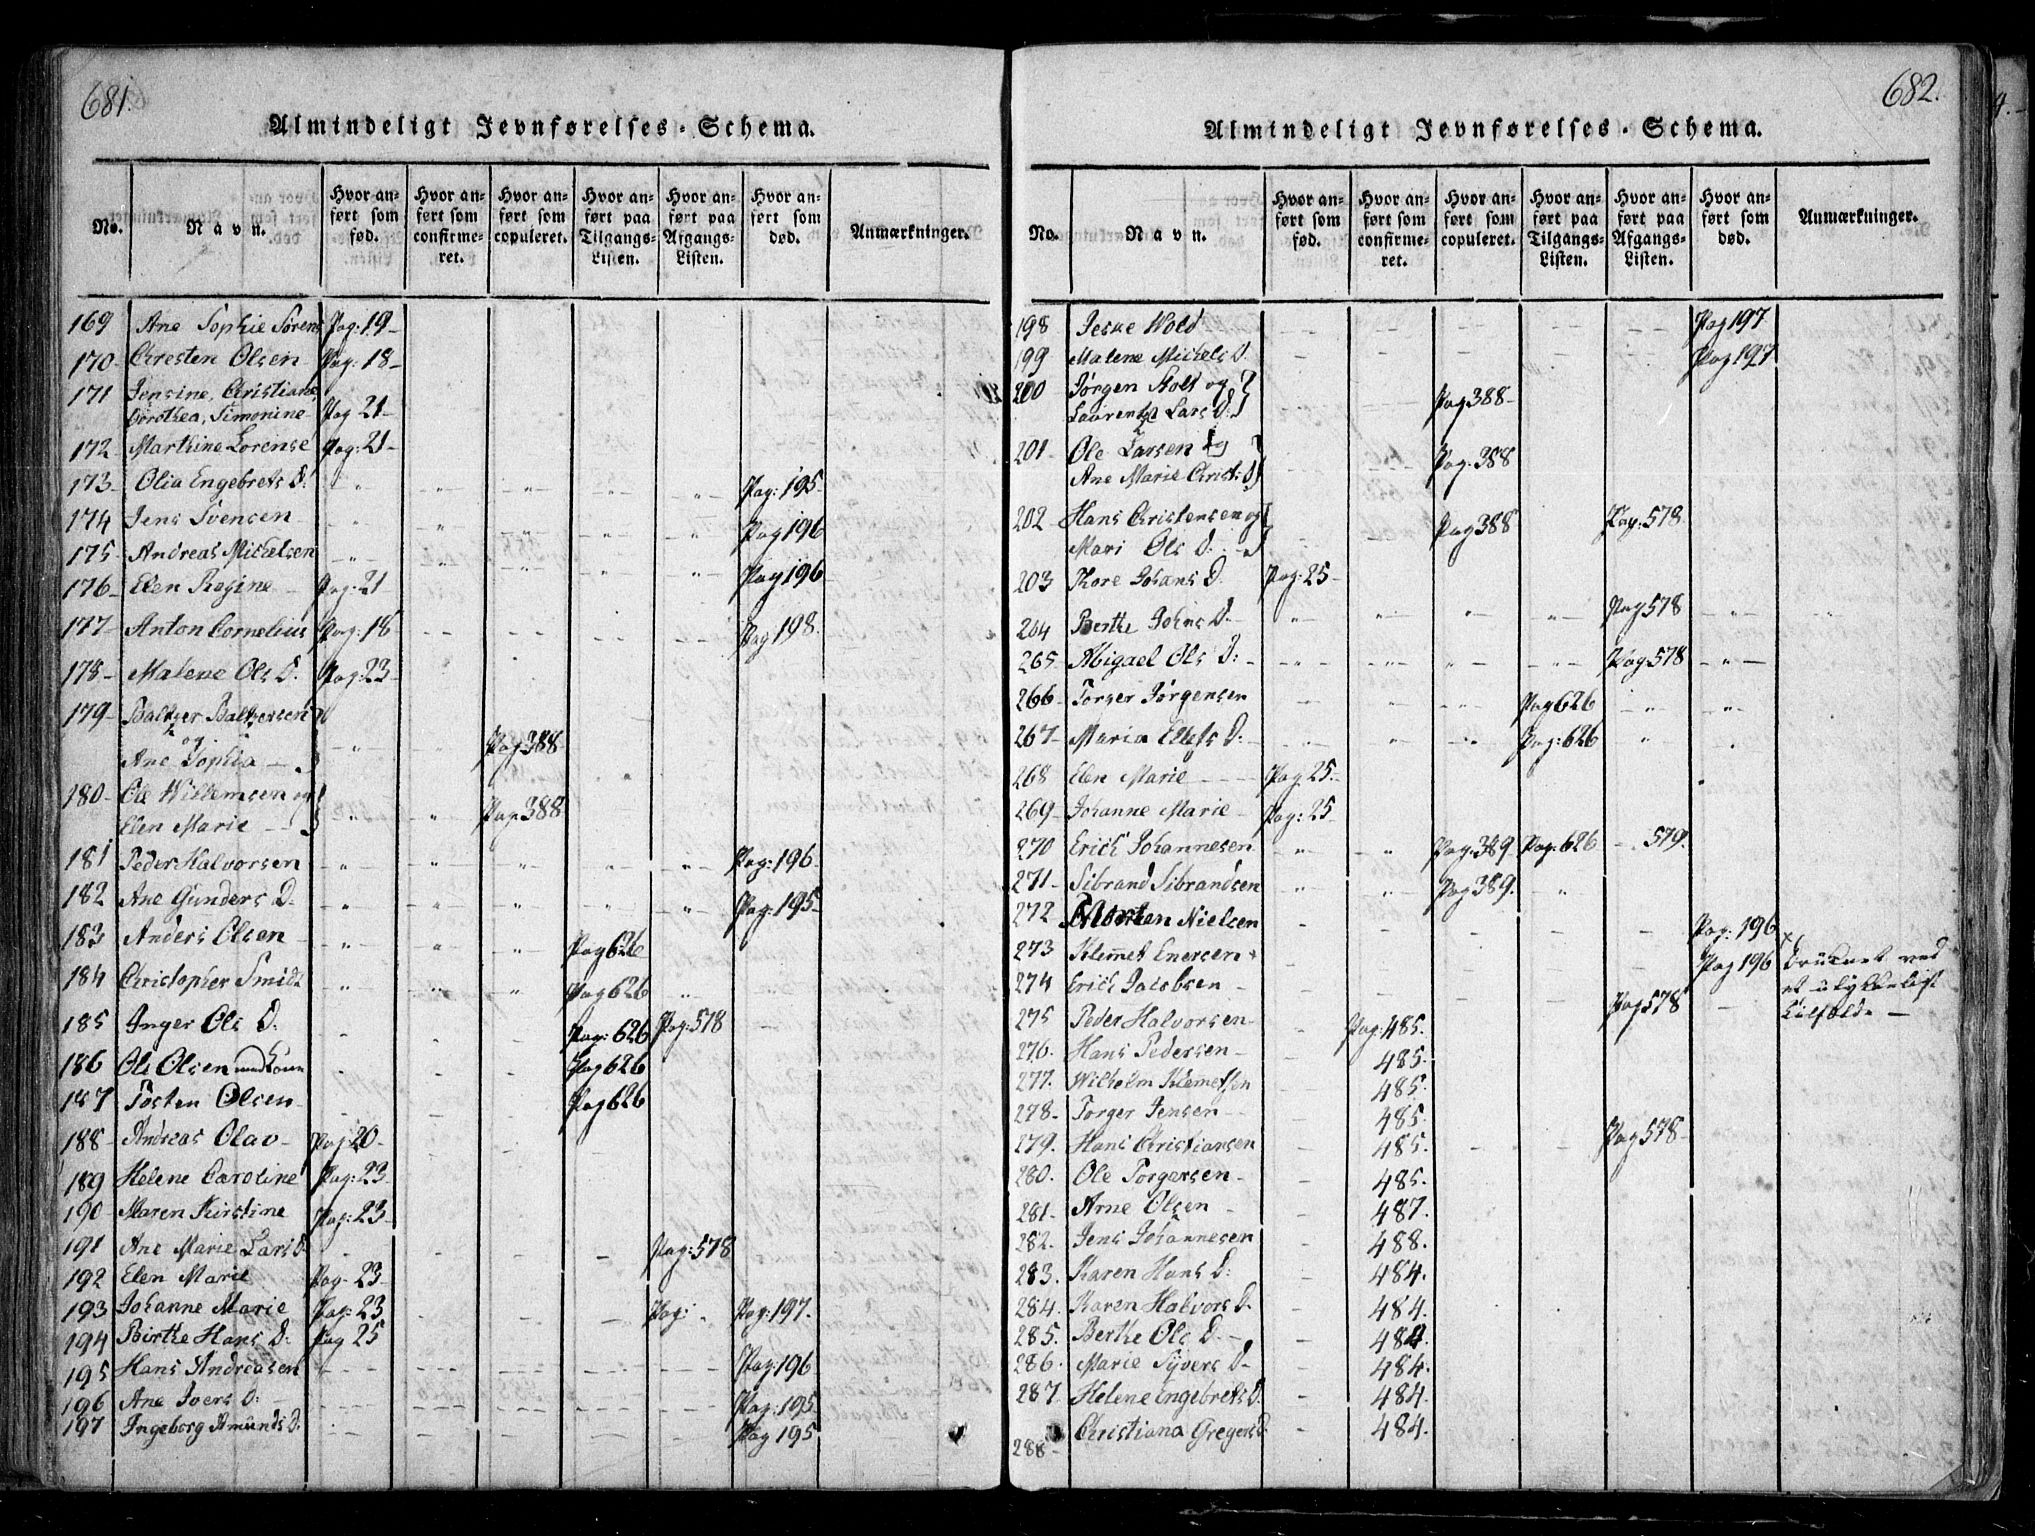 681.
Almindeligt Jevnførelses-Schema.
No. Navn. Hvor anført som fød. Hvor anført som confirmeret. Hvor anført som copuleret. Hvor anført paa Tilgangs-Listen. Hvor anført paa Afgangs-Listen. Hvor anført som død. Anmærkninger.
169 Ane Sophie Sørens Pag: 19-
170- Chresten Olsen Pag: 18-
171 Jensine, Christiane,
Dorothea, Simonine- Pag 21-
172- Marthine Lorense Pag: 21-
173- Olia Engebrets D: Pag: 195-
174 Jens Svensen- Pag 196
175- Andreas Michelsen Pag 196
176- Elen Regine- Pag: 21
177- Anton Cornelius Pag: 18 Pag 198.
178- Malene Ols D. Pag: 23-
179- Baltzer Baltzersen
og
Ane Sophia- Pag 388-
180- Ole Willemsen og
Elen Marie- Pag. 388
181 Peder Halvorsen Pag: 196-
182 Ane Gunders D- Pag: 195-
183 Anders Olsen- Pag 626
184 Christopher Smidt Pag 626
185 Inger Ols D. Pag: 626 Pag: 578
186 Ole Olsen med Kone Pag 626
187 Tosten Olsen- Pag 626
188- Andreas Olav- Pag: 20-
189 Helene Caroline Pag: 23-
190- Maren Kirstine Pag: 23-
191 Ane Marie Lars D- Pag: 578
192 Elen Marie Pag- 23-
193 Johanne Marie Pag: 23 Pag: Pag: 197.
194 Birthe Hans D: Pag 25
195 Hans Andreasen Pag: 196
196 Ane Ivers D: Pag: 195
197 Ingeborg Amunds D: Pag 195
682.
Almindeligt Jevnførelses-Schema.
No. Navn. Hvor anført som fød. Hvor anført som confirmeret. Hvor anført som copuleret. Hvor anført paa Tilgangs-Listen. Hvor anført paa Afgangs-Listen. Hvor anført som død. Anmærkninger.
198 Wold Pag 197
199 Malene Michels D. Pag 197
200 Jørgen Holt og
Lars D: Pag 388-
201- Ole Larsen og
Ane Marie Christ: D Pag: 388
202 Hans Christensen og
Mari Ols D. Pag 388 Pag. 578
203 Thore Johans D Pag: 25-
264 Berthe Johns D- Pag 578
265 Abigael Ols D:- Pag 578
266- Torger Jørgensen Pag 626
267- Maria Ellefs D: Pag: 626
268 Elen Marie Pag 25.
269- Johanne Marie Pag: 25
270 Erich Johannesen Pag. 389 Pag. 626 579.
271- Sibrand Sibrandsen Pag 389.
272 Morten Nielsen Pag: 196
273 Klemet Enersen + Pag 196 + Druknet ved
274 Erich Jacobsen- Pag 578 et ulykkeligt
275 Peder Halvorsen- Pag: 485. Tilfælde-
276. Hans Pedersen- 485.
277. Wilhelm Klemetsen 485.
278- Torger Jensen 485.
279. Hans Christiansen 485. Pag 578-
280. Ole Torgersen- 485.
281- Arne Olsen- 487.
282. Jens Johannesen 488.
283. Karen Hans D: 484.
284. Karen Halvors D. 484.
285. Berthe Ols D.- 484.
286. Marie Syvers D- 484.
287. Helene Engebrets D. 484.
288- Christiana Gregers D. 484.